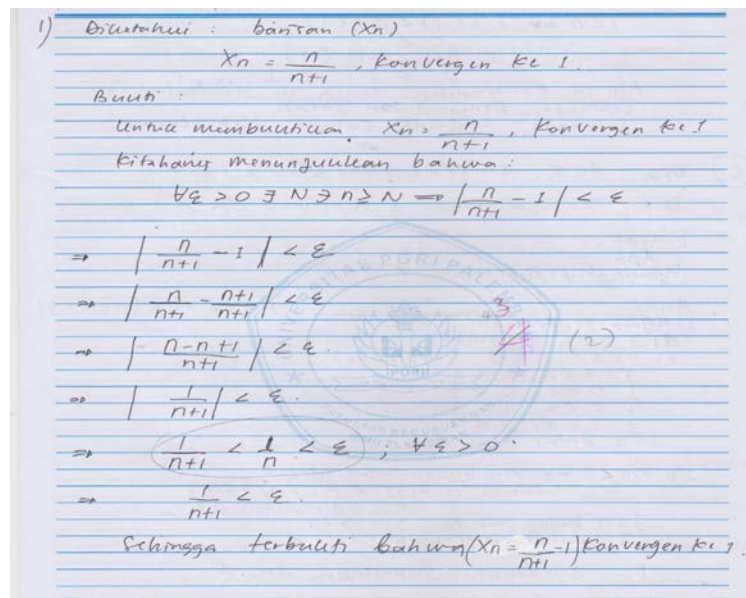 1) Diketahui : barisan (Xn)
Xn = n/n+1 , konvergen ke 1.
Bukti :
Untuk membuktikan Xn = n/n+1 , konvergen ke 1
Kita harus menunjukkan bahwa :
∀ε > 0 ∃ N ∋ n ≥ N ⇒ | n/n+1 - 1 | < ε
⇒ | n/n+1 - 1 | < ε
⇒ | n/n+1 - n+1/n+1 | < ε
⇒ | n-n+1/n+1 | < ε.
3
(2)
⇒ | 1/n+1 | < ε.
⇒ 1/n+1 < 1/n < ε ; ∀ε > 0.
⇒ 1/n+1 < ε.
Sehingga terbukti bahwa (Xn = n/n+1 - 1) konvergen ke 1.
UNIVERSITAS PGRI PALEMBANG
PGRI